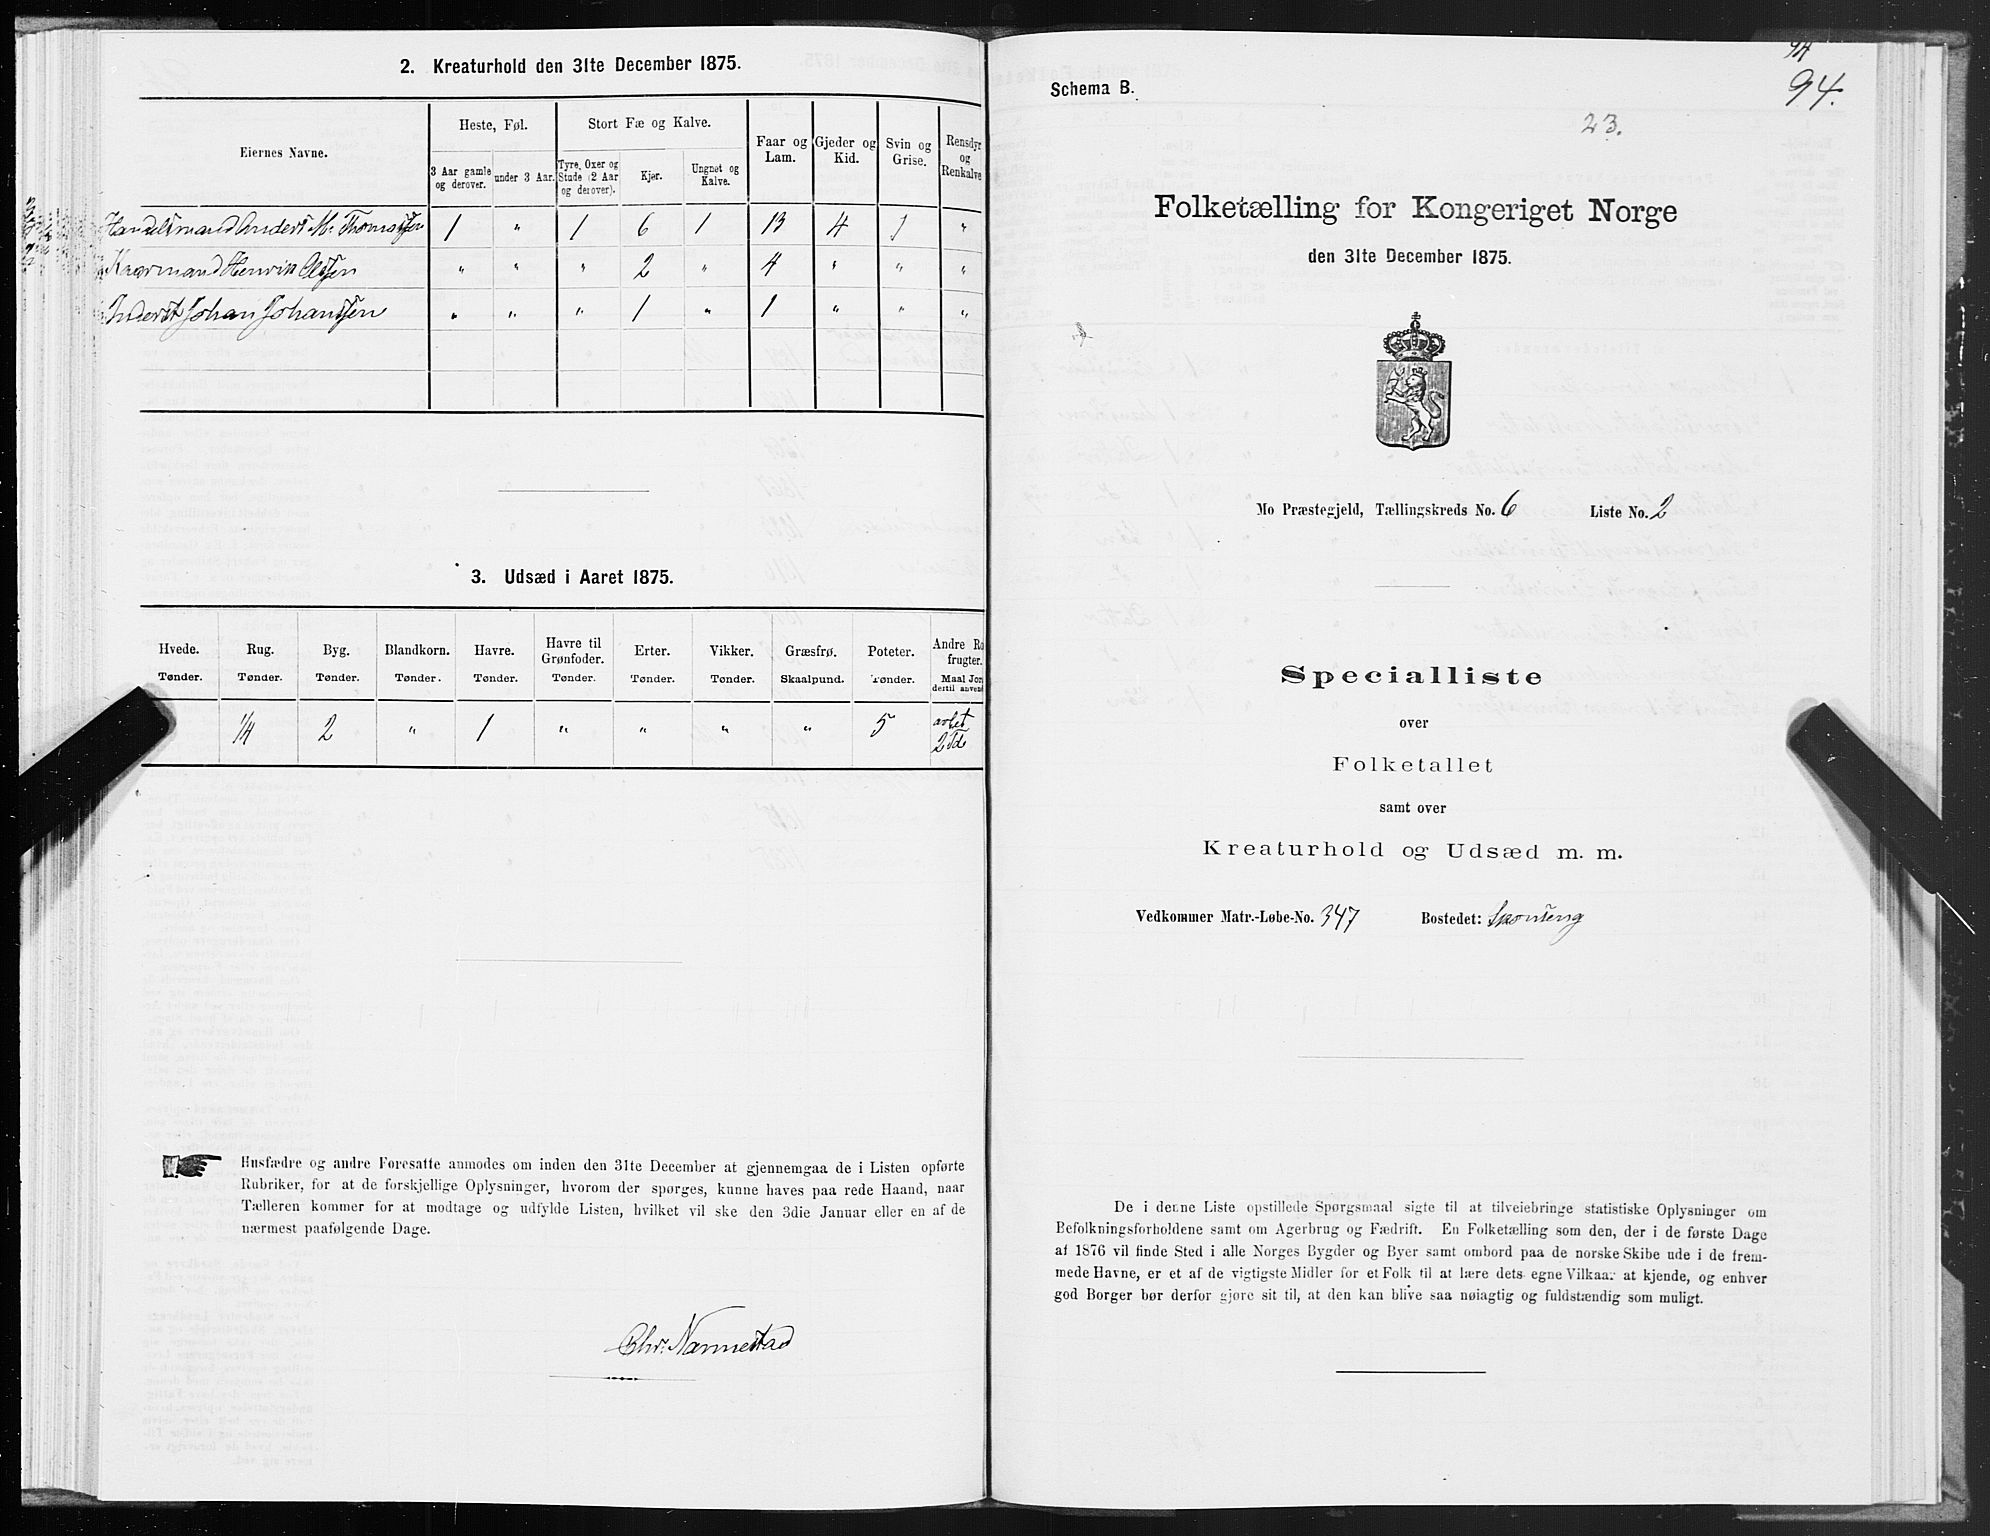 2. Kreaturhold den 31te December 1875.
Eiernes Navne.
Heste, Føl.
Stort Fæ og Kalve.
Faar og Lam.
Gjeder og Kid.
Svin og Grise.
Rensdyr og Renkalve
3 Aar gamle og derover.
under 3 Aar.
Tyre, Oxer og Stude (2 Aar og derover).
Kjør.
Ungnøt og Kalve.
Handelsmand Anders M. Thomassen 1 " 1 6 1 13 4 1 "
Kaarmand Henrik Olsen " " " 2 " 4 " " "
Inderst Johan Johansen " " " 1 " 1 " " "
3. Udsæd i Aaret 1875.
Hvede. Rug. Byg. Blandkorn. Havre. Havre til Grønfoder. Erter. Vikker. Græsfrø. Poteter. Andre Ro
frugter.
Tønder. Tønder. Tønder. Tønder. Tønder. Tønder. Tønder. Tønder. Skaalpund. Tønder. Maal Jor
dertil anvend
1/4 2 " 1 " " " " 5 
2 Tde
Husfædre og andre Foresatte anmodes om inden den 31te December at gjennemgaa de i Listen opførte
Rubriker, for at de forskjellige Oplysninger, hvorom der spørges, kunne haves paa rede Haand, naar
Tælleren kommer for at modtage og udfylde Listen, hvilket vil ske den 3die Januar eller en af de
nærmest paafølgende Dage.
Chr. Nannestad
94
94.
Schema B.
23.
Folketælling for Kongeriget Norge
den 31te December 1875.
Mo Præstegjeld, Tællingskreds No. 6 Liste No. 2
Specialliste
over
Folketallet
samt over
Kreaturhold og Udsæd m. m.
Vedkommer Matr.-Løbe-No. 347 Bostedet:
De i denne Liste opstillede Spørgsmaal sigte til at tilveiebringe statistiske Oplysninger om
Befolkningsforholdene samt om Agerbrug og Fædrift. En Folketælling som den, der i de første Dage
af 1876 vil finde Sted i alle Norges Bygder og Byer samt ombord paa de norske Skibe ude i de frem-
mede Havne, er et af de vigtigste Midler for et Folk til at lære dets egne Vilkaar at kjende, og enhver
god Borger bør derfor gjøre sit til, at den kan blive saa nøiagtig og fuldstændig som muligt.